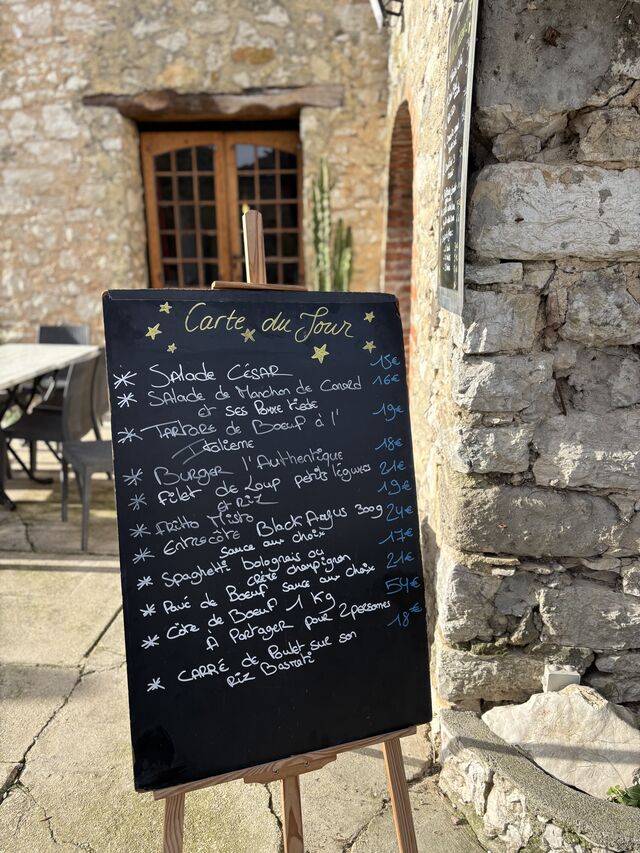 Carte du Jour
Salade CÉSAR 15€
Salade de Manchon de Canard 16€
et ses Pomme tiède
TARTARE de BOEUF à l' 19€
Italienne
BURGER l'Authentique 18€
Filet de Loup petits légumes 21€
et Riz
Fritto Misto 19€
Entrecôte Black Angus 300g 24€
sauce aux choix
Spaghetti bolognais ou 17€
crème champignon
Pavé de Boeuf sauce aux choix 21€
Côte de Boeuf 1 Kg 54€
À Partager pour 2 personnes
CARRÉ de Poulet sur son 18€
Riz Basmati